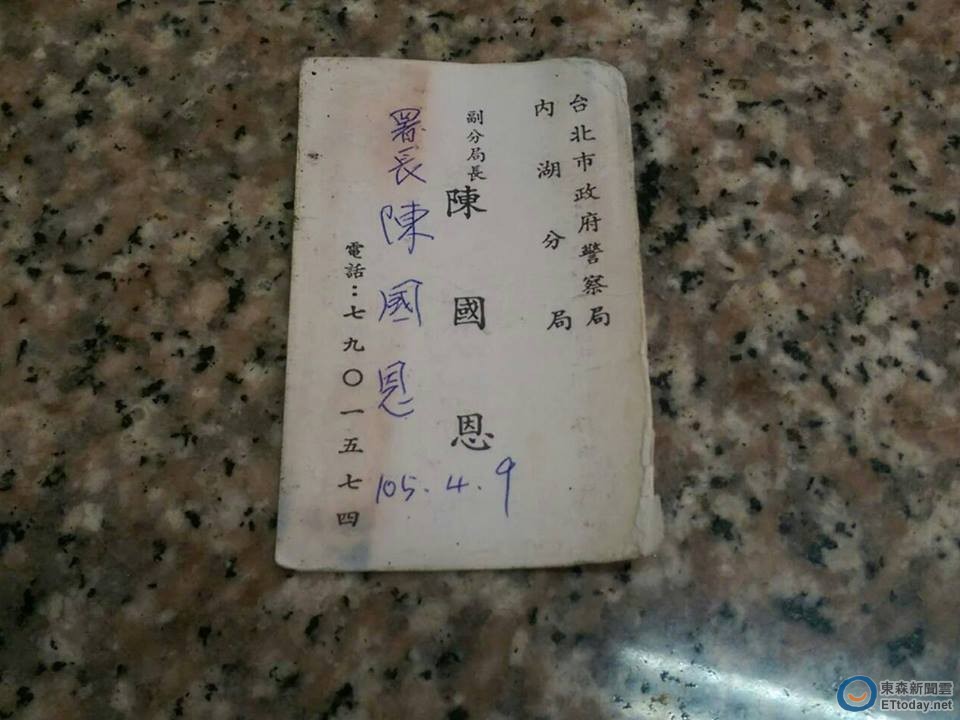 台北市政府警察局
內湖分局
副分局長
陳國恩
署長陳國恩
105.4.9
電話：七九〇一五七四
東森新聞雲
ETtoday.net